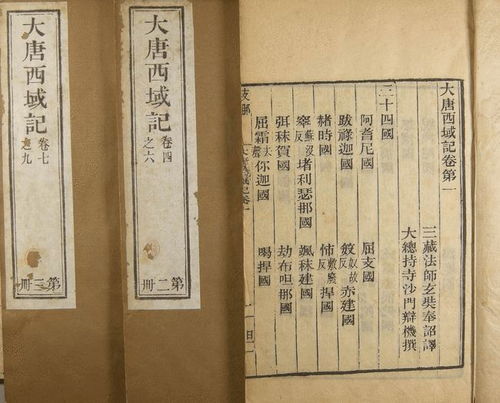 大唐西域記卷第一
三藏法師玄奘奉詔譯
大總持寺沙門辯機撰
三十四國
阿耆尼國 屈支國
跋祿迦國 笯奴故反赤建國
赭時國 㤄敷廢反捍國
窣蘇沒反堵利瑟那國 颯秣建國
弭秣賀國 劫布呾那國
屈霜去聲你迦國 喝捍國
大唐西域記
卷四之六
第二冊
大唐西域記
卷七之九
第三冊